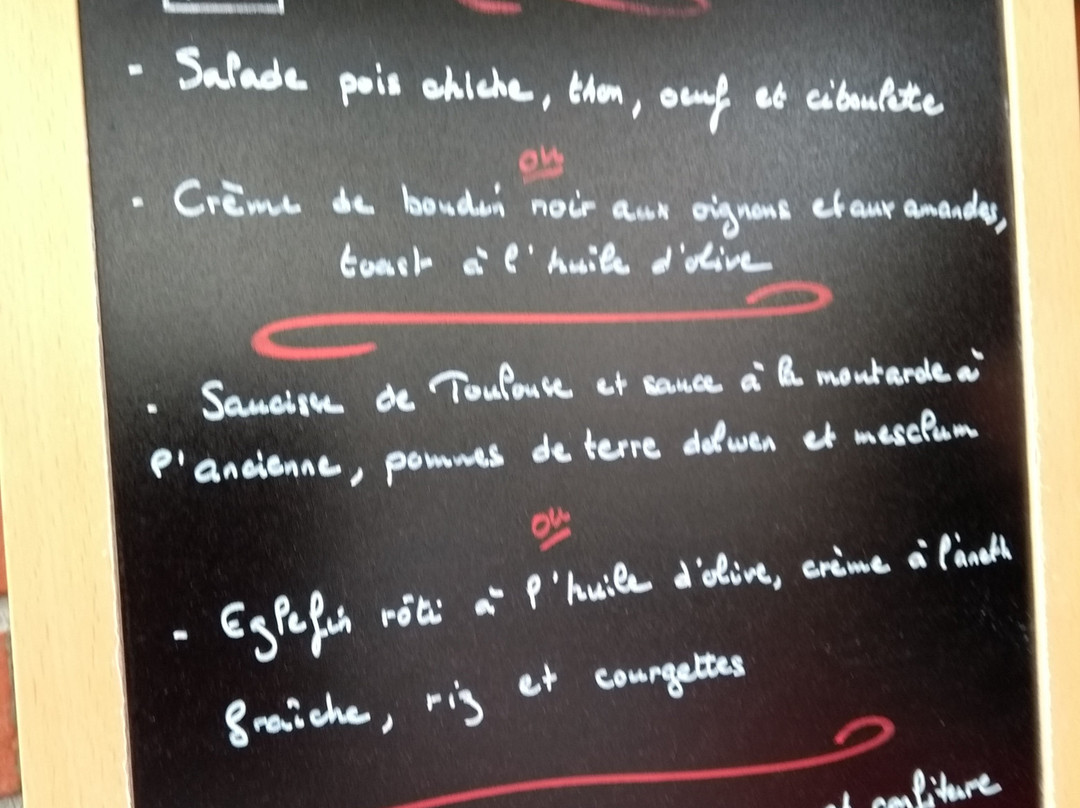 - Salade pois chiche, thon, oeuf et ciboulette
ou
- Crème de boudin noir aux oignons et aux amandes,
toast à l'huile d'olive
- Saucisse de Toulouse et sauce à la moutarde à
l'ancienne, pommes de terre dolwen et mesclum
ou
- Eglefin rôti à l'huile d'olive, crème à l'aneth
fraîche, riz et courgettes
et confiture